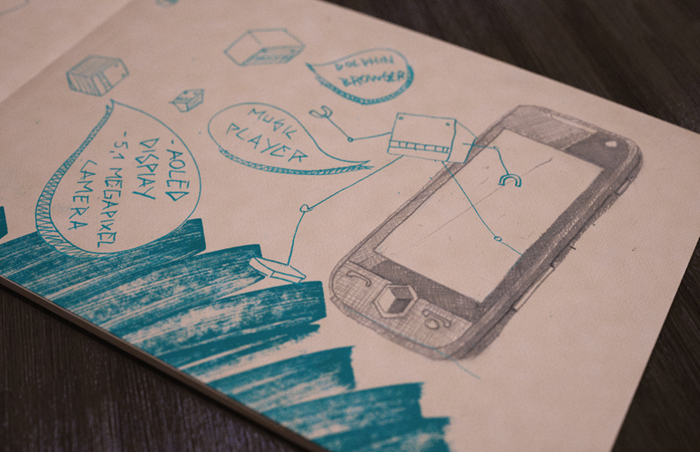 DOLPHIN
BROWSER
MUSIC
PLAYER
- AOLED
DISPLAY
- 5,1 MEGAPIXEL
CAMERA